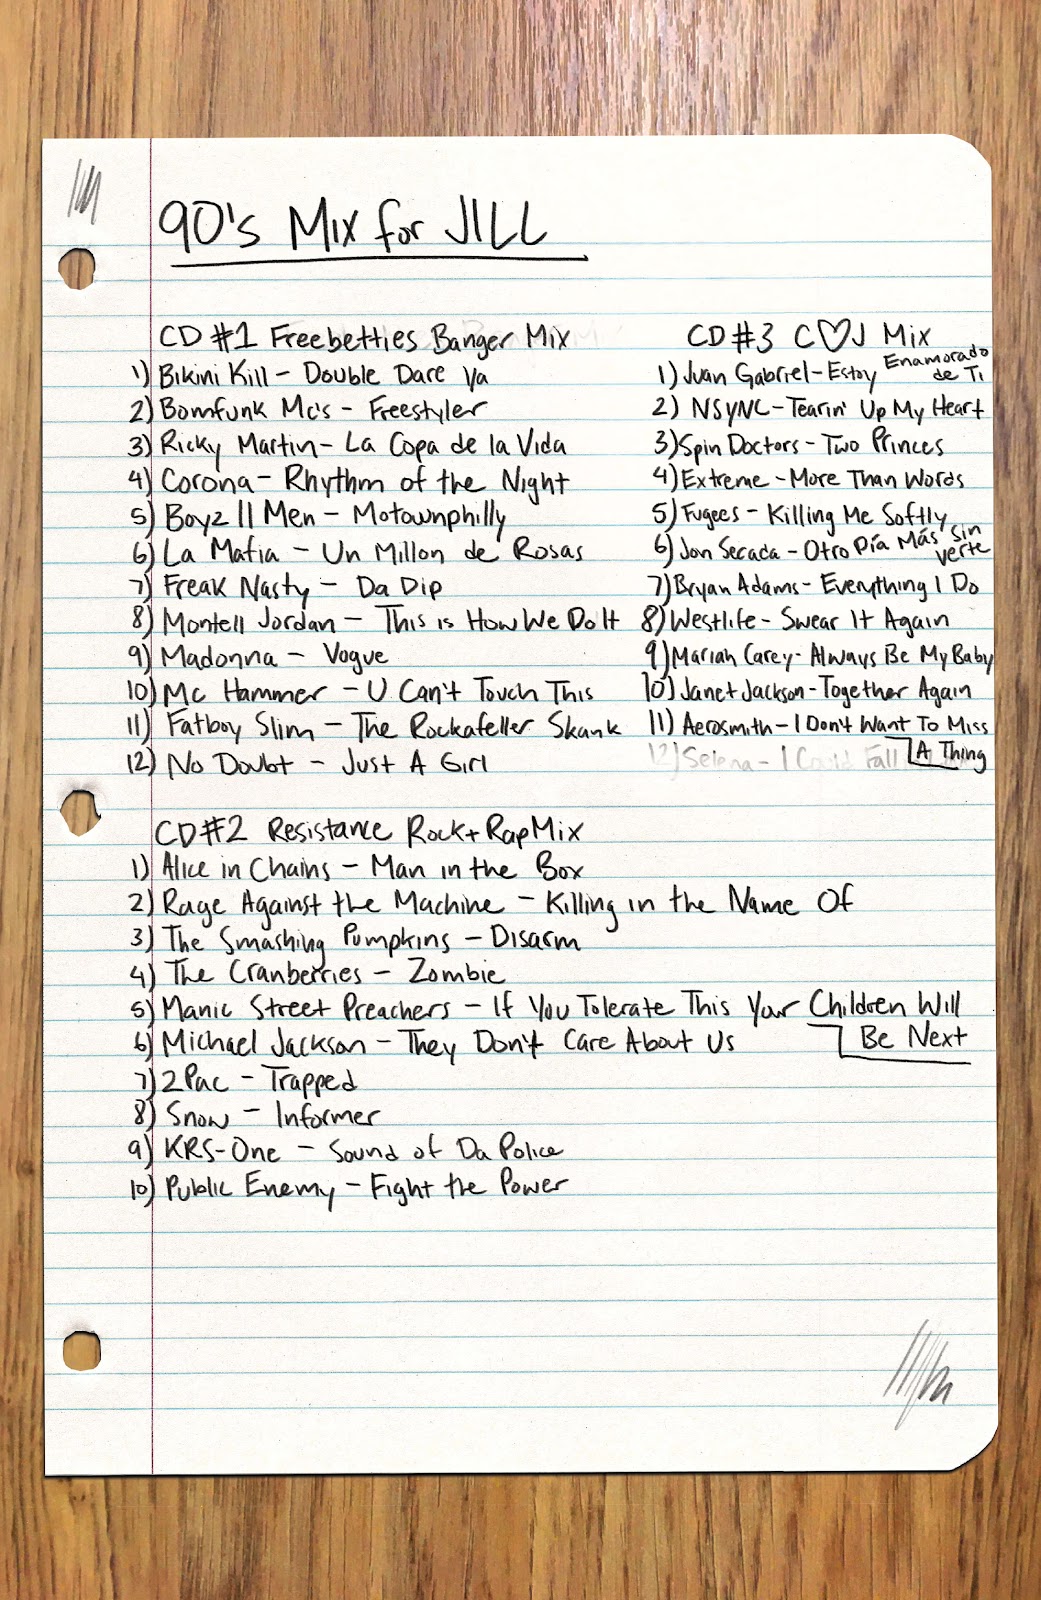 90's Mix for JILL
CD #1 Freebetties Banger Mix
1) Bikini Kill - Double Dare Ya
2) Bomfunk Mc's - Freestyler
3) Ricky Martin - La Copa de la Vida
4) Corona - Rhythm of the Night
5) Boyz II Men - Motownphilly
6) La Mafia - Un Millon de Rosas
7) Freak Nasty - Da Dip
8) Montell Jordan - This is How We Do It
9) Madonna - Vogue
10) Mc Hammer - U Can't Touch This
11) Fatboy Slim - The Rockafeller Skank
12) No Doubt - Just A Girl
CD #2 Resistance Rock + Rap Mix
1) Alice in Chains - Man in the Box
2) Rage Against the Machine - Killing in the Name Of
3) The Smashing Pumpkins - Disarm
4) The Cranberries - Zombie
5) Manic Street Preachers - If You Tolerate This Your Children Will
Be Next
6) Michael Jackson - They Don't Care About Us
7) 2Pac - Trapped
8) Snow - Informer
9) KRS-One - Sound of Da Police
10) Public Enemy - Fight the Power
CD #3 C♡J Mix
1) Juan Gabriel - Estoy Enamorado
de Ti
2) NSYNC - Tearin' Up My Heart
3) Spin Doctors - Two Princes
4) Extreme - More Than Words
5) Fugees - Killing Me Softly
6) Jon Secada - Otro Día Más Sin
verte
7) Bryan Adams - Everything I Do
8) Westlife - Swear It Again
9) Mariah Carey - Always Be My Baby
10) Janet Jackson - Together Again
11) Aerosmith - I Don't Want To Miss
A Thing
12) Selena - I Could Fall